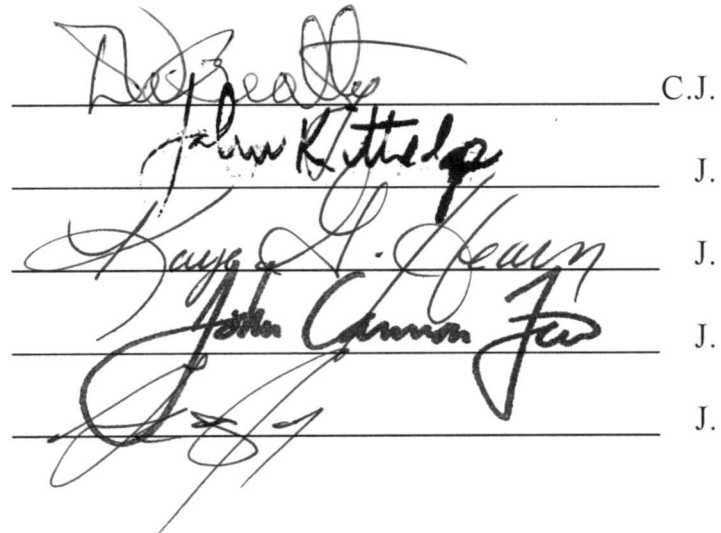 D.W. Beatty C.J.
John Kittredge J.
Kaye G. Hearn J.
John Cannon Few J.
J.